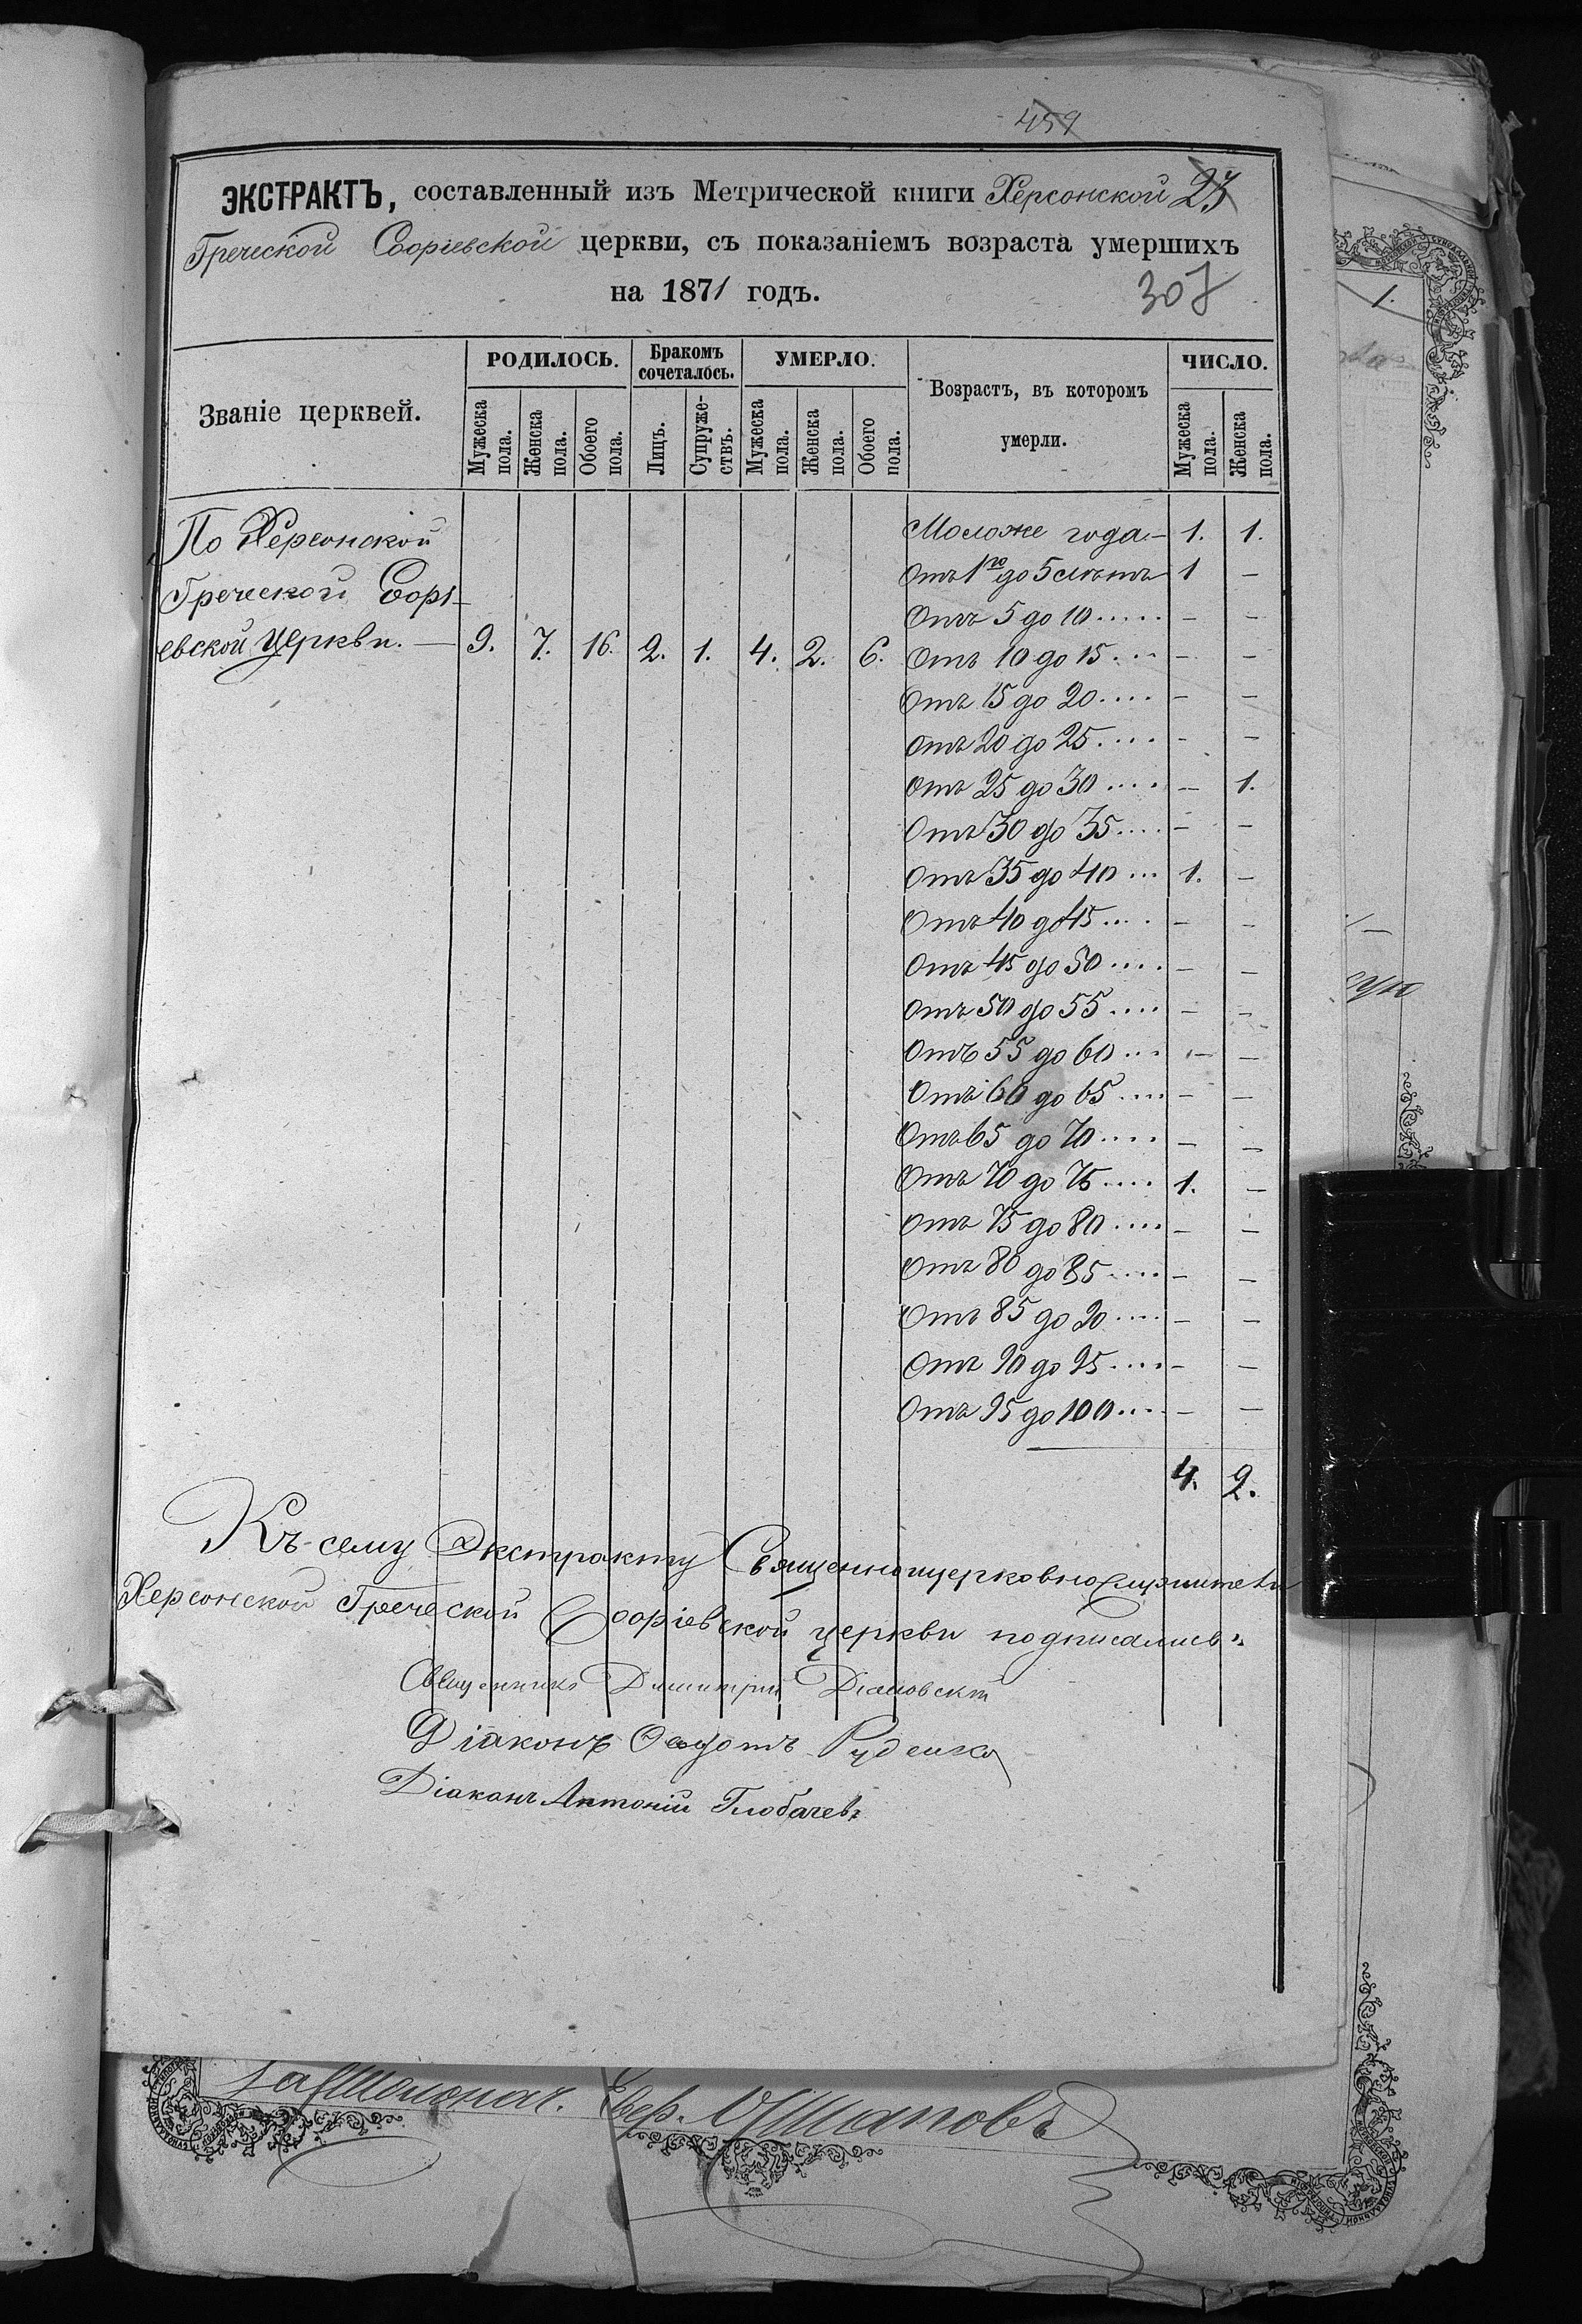 459
ЭКСТРАКТЪ, составленный изъ Метрической книги Херсонской 23
Греческой Софіевской церкви, съ показаніемъ возраста умершихъ
на 1871 годъ.
307
Званіе церквей.
РОДИЛОСЬ.
Мужеска пола.
Женска пола.
Обоего пола.
Бракомъ сочеталось.
Лицъ.
Супружествъ.
УМЕРЛО.
Мужеска пола.
Женска пола.
Обоего пола.
Возрастъ, въ которомъ
умерли.
ЧИСЛО.
Мужеска пола.
Женска пола.
По Херсонской
Греческой Софі-
евской церкви. — 9. 7. 16. 2. 1. 4. 2. 6.
Моложе года – 1. 1.
Отъ 1го до 5 лѣтъ 1 –
Отъ 5 до 10 ..... – –
Отъ 10 до 15 .... – –
Отъ 15 до 20 .... – –
Отъ 20 до 25 .... – –
Отъ 25 до 30 .... – 1.
Отъ 30 до 35 .... – –
Отъ 35 до 40 ... 1. –
Отъ 40 до 45 .... – –
Отъ 45 до 50 .... – –
Отъ 50 до 55 .... – –
Отъ 55 до 60 ... – –
Отъ 60 до 65 .... – –
Отъ 65 до 70 .... – –
Отъ 70 до 75 .... 1. –
Отъ 75 до 80 .... – –
Отъ 80 до 85 .... – –
Отъ 85 до 90 .... – –
Отъ 90 до 95 .... – –
Отъ 95 до 100 .... – –
4. 2.
Къ сему Экстракту Священноцерковнослужители
Херсонской Греческой Софіевской церкви подписались:
Священникъ Димитрій
Діаконъ Ѳеодотъ Руденко
Діаконъ Антоній Глобачевъ
1.